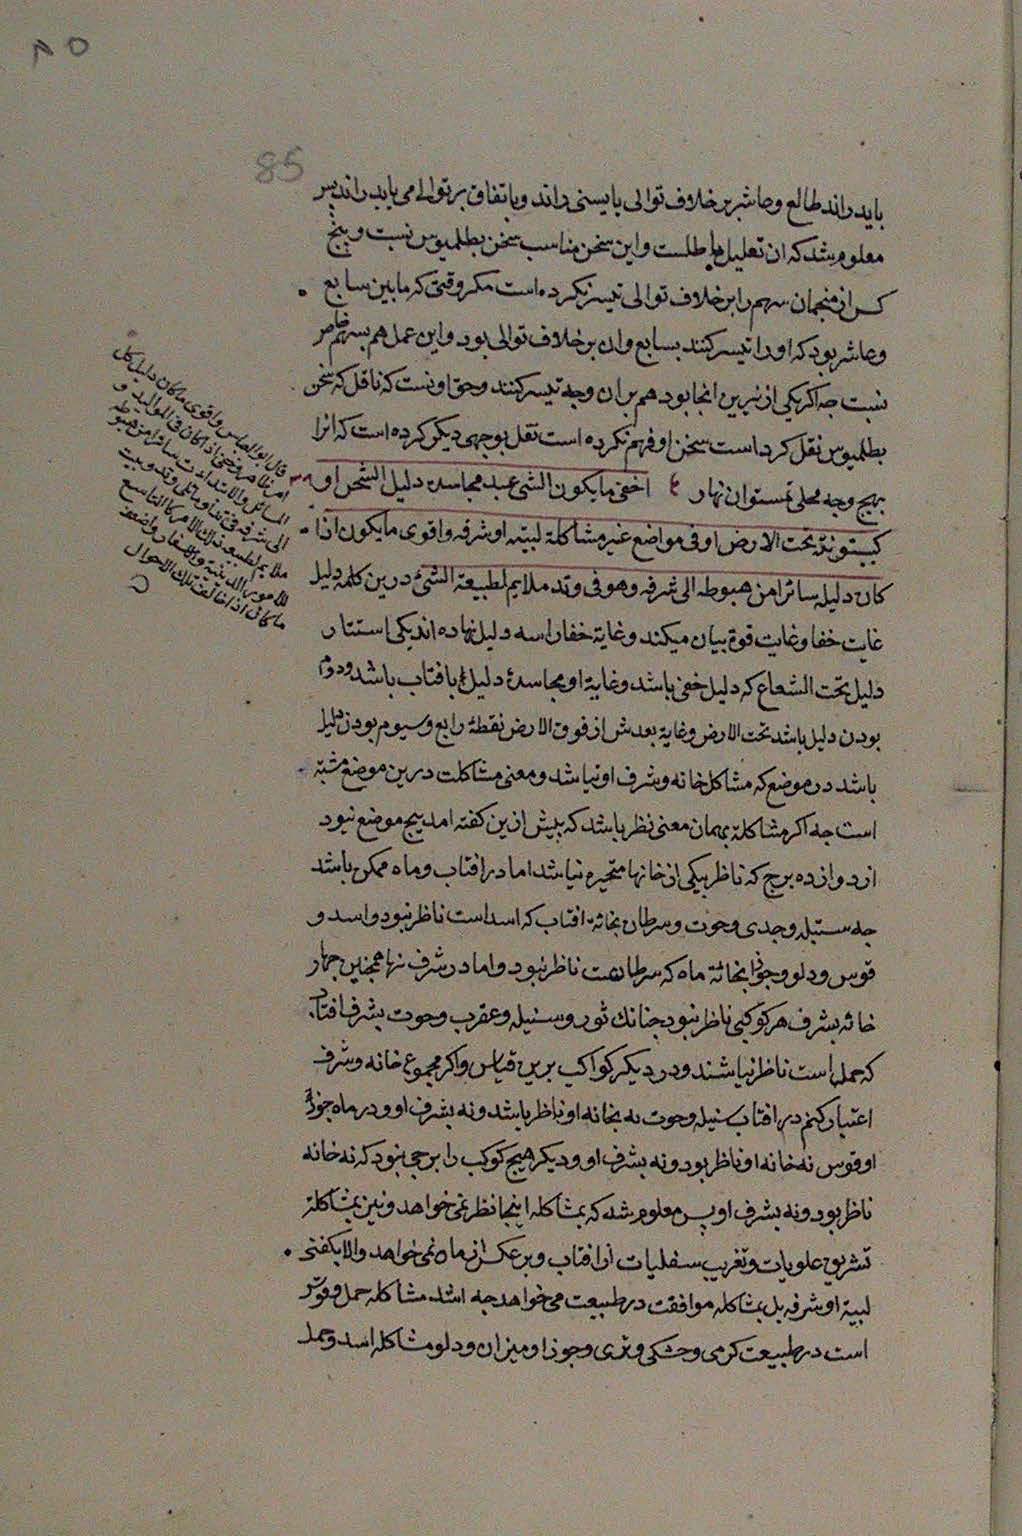 ٨٥
85
باید راند طالع و عاشر بر خلاف توالی بایستی راند و باتفاق بر توالی می باید راند پس
معلوم شد که ان تعلیل باطلست و این سخن مناسب سخن بطلمیوس نیست و هیچ
کس از منجمان سهم را بر خلاف توالی تیسر نکرده است مکر وقتی که مابین سابع
و عاشر بود که او را تیسر کنند بسابع و ان بر خلاف توالی بود و این عمل هم بسهم خاص
نیست جه اکر یکی از نیرین انجا بود هم بران وجه تیسر کنند و حق او نست که ناقل که سخن
بطلمیوس نقل کرد است سخن او فهم نکرده است نقل بوجهی دیکر کرده است که انرا
بهیچ وجه محلی نمیتوان نهاد اخفی مایکون الشی عند مجاسده دلیل الشمس او
کینونته تحت الارض او فی مواضع غیر مشاکلة لبیته او شرفه و اقوی مایکون اذا
کان دلیله سائرا من هبوطه الی شرفه وهو فی وتد ملایم لطبیعة الشئ درین کلمه دلیل
غایت خفا و غایت قوة بیان میکند و غایة خفا را سه دلیل نهاده اند یکی استتار
دلیل تحت الشعاع که دلیل خفی باشد و غایة او مجاسدهٔ دلیل بافتاب باشد و دوم
بودن دلیل باشد تحت الارض و غایة بعدش از فوق الارض نقطهٔ رابع و سیوم بودن دلیل
باشد در موضع که مشاکل خانه و شرف او نباشد و معنی مشاکلت درین موضع مشتبه
است جه اکر مشاکلة بهمان معنی نظر باشد که پیش ازین کفته امد هیچ موضع نبود
از دوازده برج که ناظر بیکی از خانها متحیره نباشد اما در افتاب و ماه ممکن باشد
جه سنبله وجدی وحوت وسرطان بخانهٔ افتاب که اسداست ناظر نبود و اسد و
قوس ودلو وجوزا بخانهٔ ماه که سرطانست ناظر نبود و اما در شرف نها همجنین جهار
خانه بشرف هر کوکبی ناظر نبود جنانك ثور و سنبله و عقرب و حوت بشرف افتاب
که حمل است ناظر نباشند و در دیکر کواکب برین قیاس و اکر مجموع خانه و شرف
اعتبار کنم در افتاب سنبله و حوت نه بخانه او ناظر باشد و نه بشرف او و در ماه جوزا
او قوس نه خانه او ناظر بود و نه بشرف او و دیکر هیچ کوکب را برجی نبود که نه خانه
ناظر بود و نه بشرف او پس معلوم شد که بمشاکله اینجا نظر نمی خواهد و نیز بمشاکلة
تشریق علویات و تغریب سفلیات از افتاب و بر عکس از ماه نمی خواهد والا یکفتی
لبیته او شرفه بل بمشاکله موافقت در طبیعت می خواهد جه اسد مشاکله حمل و قوس
است در طبیعت کرمی و خشکی و نری و جوزا و میزان و دلو مشاکله اسد و حمل
قال ابو العباس و اقوی ماکان دلیل کل
المسائل والابتداءت سائرا من هبوطه
الی شرفه فی وتد او مائلی وتد وبیت
ملایم لطبیعة ذلك الامر کالتاسع
للامور الدینیة والاسفار واضعف
ماکان اذا خالفت تلك الاحوال